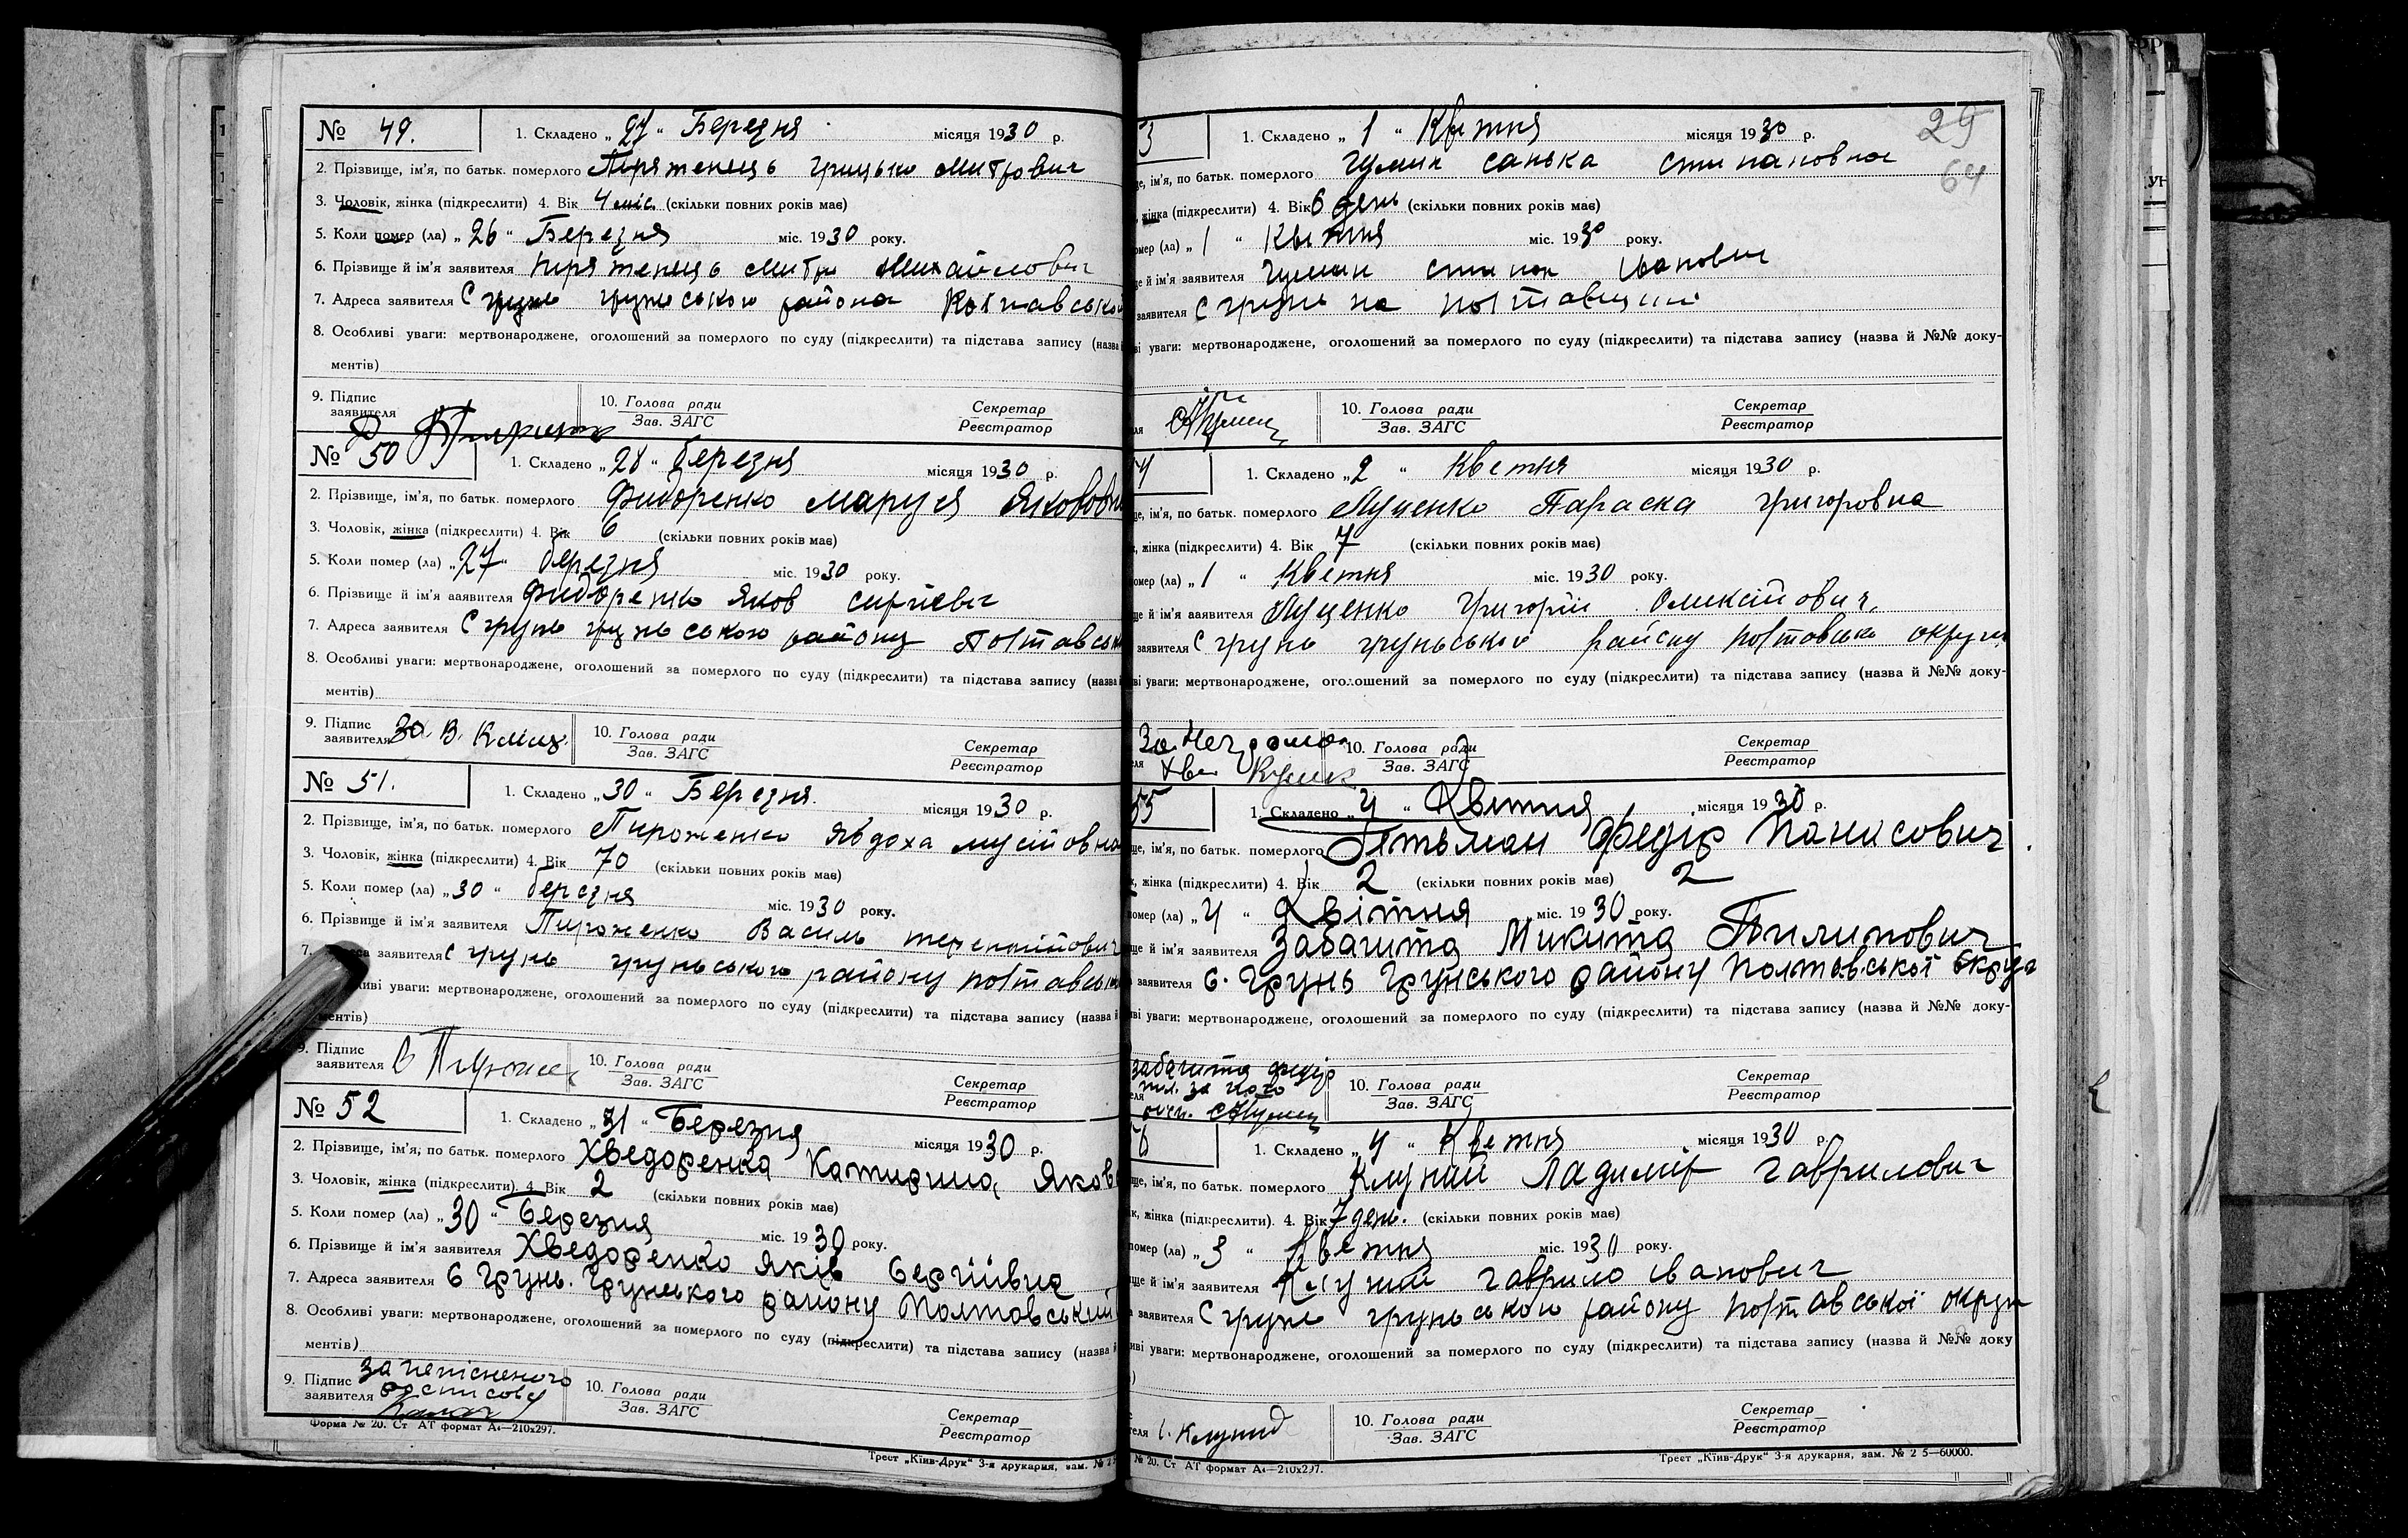 № 49.
1. Складено „ 27 “ Березня місяця 1930 р.
2. Прізвище, ім'я, по батьк. померлого Пирятенець Грицько Митрович
3. Чоловік, жінка (підкреслити) 4. Вік 4 міс. (скільки повних років має)
5. Коли помер (ла) „ 26 “ Березня міс. 1930 року.
6. Прізвище й ім'я заявителя Пирятенець Митро Михайлович
7. Адреса заявителя С грунь груньського района Полтавської
8. Особливі уваги: мертвонароджене, оголошений за померлого по суду (підкреслити) та підстава запису (назва й
ментів)
9. Підпис
заявителя
10. Голова ради
Зав. ЗАГС
Секретар
Реєстратор
№ 50
1. Складено „ 28 “ березня місяця 1930 р.
2. Прізвище, ім'я, по батьк. померлого Фидоренко Маруся Якововна
3. Чоловік, жінка (підкреслити) 4. Вік 6 (скільки повних років має)
5. Коли помер (ла) „ 27 “ березня міс. 1930 року.
6. Прізвище й ім'я заявителя Фидоренко Яков сиргієвич
7. Адреса заявителя С грунь груньського району Полтавськ
8. Особливі уваги: мертвонароджене, оголошений за померлого по суду (підкреслити) та підстава запису (назва й
ментів)
9. Підпис
заявителя За. В.
10. Голова ради
Зав. ЗАГС
Секретар
Реєстратор
№ 51.
1. Складено „ 30 “ Березня місяця 1930 р.
2. Прізвище, ім'я, по батьк. померлого Пироженко Явдоха мусійовна
3. Чоловік, жінка (підкреслити) 4. Вік 70 (скільки повних років має)
5. Коли помер (ла) „ 30 “ березня міс. 1930 року.
6. Прізвище й ім'я заявителя Пироженко Василь терентійович
7. заявителя С грунь груньського району полтавськ
уваги: мертвонароджене, оголошений за померлого по суду (підкреслити) та підстава запису (назва й
ментів)
9. Підпис
заявителя
10. Голова ради
Зав. ЗАГС
Секретар
Реєстратор
№ 52
1. Складено „ 31 “ Березня місяця 1930 р.
2. Прізвище, ім'я, по батьк. померлого Хведоренко Катирина Яков
3. Чоловік, жінка (підкреслити). 4. Вік 2 (скільки повних років має)
5. Коли помер (ла) „ 30 “ Березня міс. 1930 року.
6. Прізвище й ім'я заявителя Хведоренко Яків Сергіївич
7. Адреса заявителя С Грунь. Грунського району Полтовський
8. Особливі уваги: мертвонароджене, оголошений за померлого по суду (підкреслити) та підстава запису (назва й
ментів)
9. Підпис
заявителя
10. Голова ради
Зав. ЗАГС
Секретар
Реєстратор
Форма № 20. Ст АТ формат А4—210х297.
Трест „Київ-Друк“ 3-я друкарня, зам. №
29
64
3
1. Складено „ 1 “ Квітня місяця 1930 р.
ім'я, по батьк. померлого санька стипановна
жінка (підкреслити) 4. Вік 6 день (скільки повних років має)
помер (ла) „ 1 “ Квітня міс. 1930 року.
й ім'я заявителя степан Іванович
заявителя С грунь на полтавщині
уваги: мертвонароджене, оголошений за померлого по суду (підкреслити) та підстава запису (назва й №№ доку-
10. Голова ради
Зав. ЗАГС
Секретар
Реєстратор
54
1. Складено „ 2 “ Кветня місяця 1930 р.
ім'я, по батьк. померлого Луценко Параска Григоровна
жінка (підкреслити) 4. Вік 7 (скільки повних років має)
помер (ла) „ 1 “ Кветня міс. 1930 року.
й ім'я заявителя Луценко Григорій Оликсійович.
заявителя С грунь груньської району полтовсько округи
уваги: мертвонароджене, оголошений за померлого по суду (підкреслити) та підстава запису (назва й №№ доку-
10. Голова ради
Зав. ЗАГС
Секретар
Реєстратор
55
1. Складено „ 4 “ Квітня місяця 1930 р.
ім'я, по батьк. померлого Гетьман Федір Панасович
жінка (підкреслити) 4. Вік 2 (скільки повних років має) 2
помер (ла) „ 4 “ Квітня міс. 1930 року.
й ім'я заявителя Забашта Микита Пилипович
заявителя С. Грунь Грунського району Полтавської Округ
уваги: мертвонароджене, оголошений за померлого по суду (підкреслити) та підстава запису (назва й №№ доку-
10. Голова ради
Зав. ЗАГС
Секретар
Реєстратор
1. Складено „ 4 “ Кветня місяця 1930 р.
ім'я, по батьк. померлого Клуний Ладимір Гаврилович
жінка (підкреслити). 4. Вік 7 день. (скільки повних років має)
помер (ла) „ 3 “ Кветня міс. 1930 року.
й ім'я заявителя Клуний Гаврило Іванович
заявителя С грунь груньського району полтавської округи
уваги: мертвонароджене, оголошений за померлого по суду (підкреслити) та підстава запису (назва й №№ доку
10. Голова ради
Зав. ЗАГС
Секретар
Реєстратор
№ 20. Ст АТ формат А4—210х297.
Трест „Київ-Друк“ 3-я друкарня, зам. № 2 5—60000.